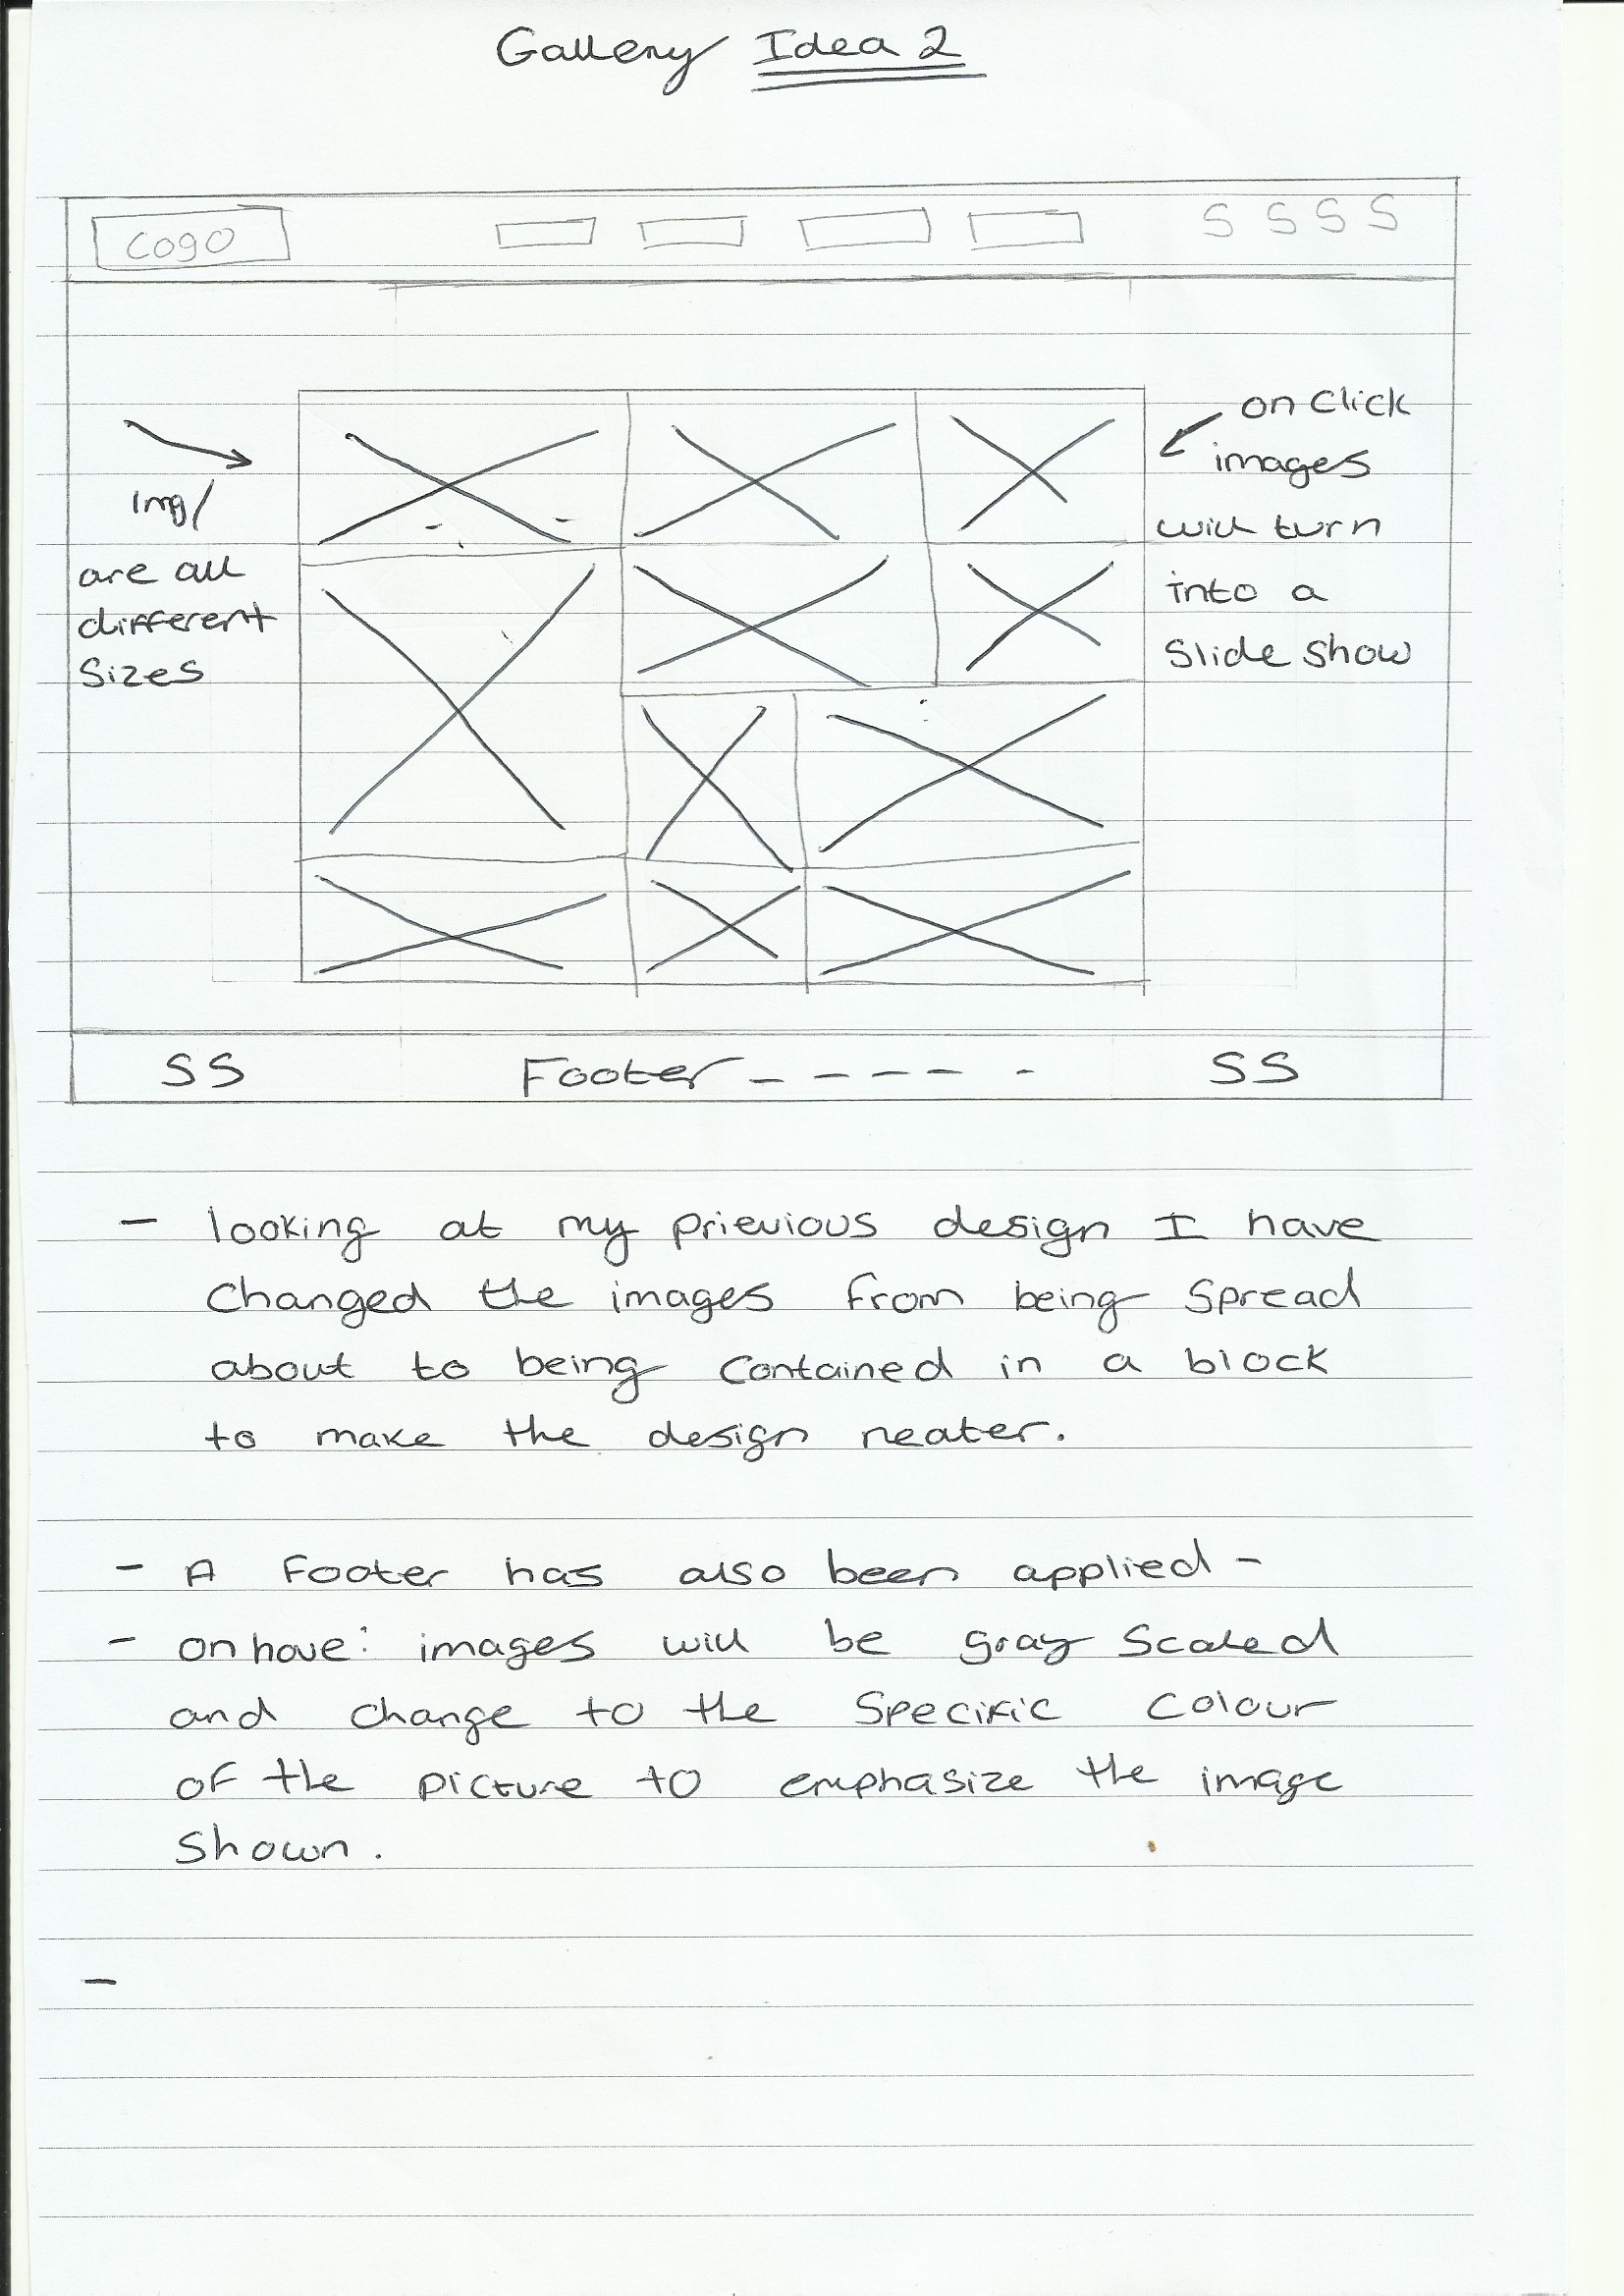 Gallery Idea 2
Logo
S S S S
Img/
are all
different
Sizes
on Click
images
will turn
into a
Slide show
SS Footer - - - - - SS
- looking at my prievious design I have
Changed the images from being Spread
about to being Contained in a block
to make the design neater.
- A Footer has also been applied -
- on hove: images will be gray Scaled
and change to the Specific Colour
of the picture to emphasize the image
Shown.
-